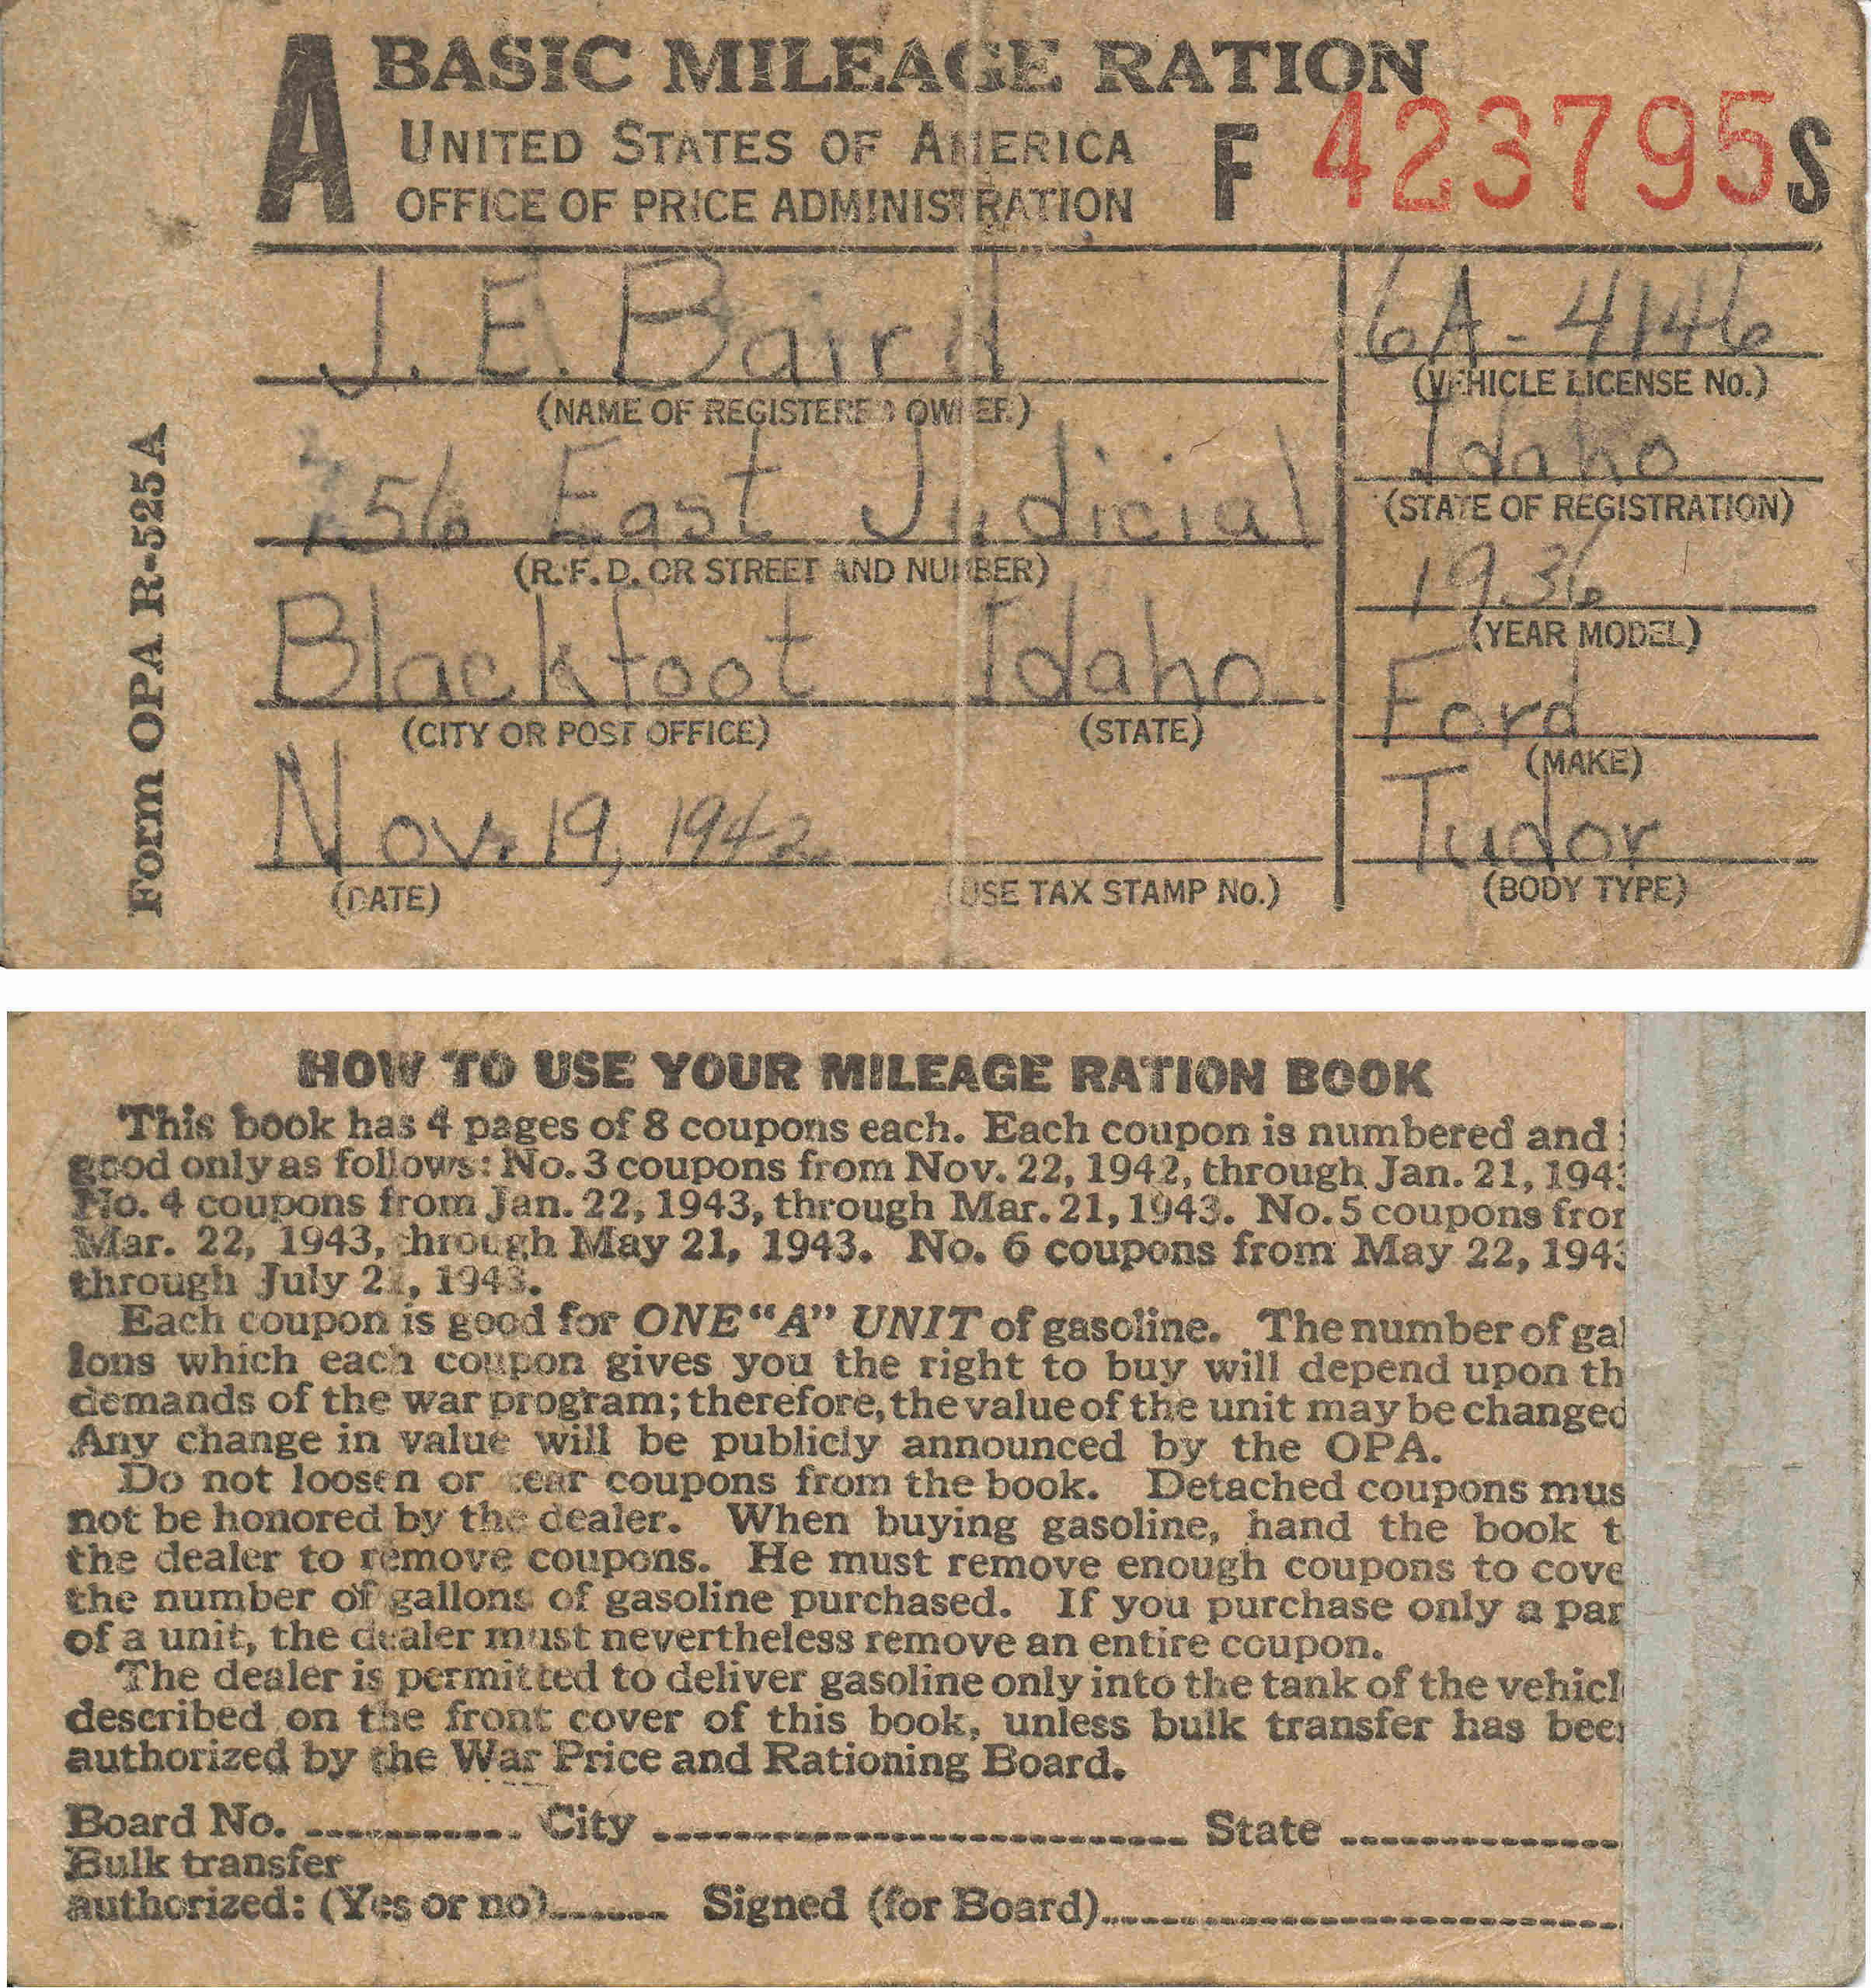 A BASIC MILEAGE RATION
UNITED STATES OF AMERICA
OFFICE OF PRICE ADMINISTRATION
F 423795 S
J. E. Baird
(NAME OF REGISTERED OWNER)
56 East Judicial
(R. F. D. OR STREET AND NUMBER)
Blackfoot Idaho
(CITY OR POST OFFICE) (STATE)
Nov. 19, 1942
(DATE) (USE TAX STAMP No.)
6A-4146
(VEHICLE LICENSE No.)
Idaho
(STATE OF REGISTRATION)
1936
(YEAR MODEL)
Ford
(MAKE)
Tudor
(BODY TYPE)
Form OPA R-525A
HOW TO USE YOUR MILEAGE RATION BOOK
This book has 4 pages of 8 coupons each. Each coupon is numbered and
good only as follows: No. 3 coupons from Nov. 22, 1942, through Jan. 21, 194
No. 4 coupons from Jan. 22, 1943, through Mar. 21, 1943. No. 5 coupons fro
Mar. 22, 1943, through May 21, 1943. No. 6 coupons from May 22, 194
through July 21, 1943.
Each coupon is good for ONE "A" UNIT of gasoline. The number of gal
lons which each coupon gives you the right to buy will depend upon th
demands of the war program; therefore, the value of the unit may be changed
Any change in value will be publicly announced by the OPA.
Do not loosen or tear coupons from the book. Detached coupons mus
not be honored by the dealer. When buying gasoline, hand the book t
the dealer to remove coupons. He must remove enough coupons to cove
the number of gallons of gasoline purchased. If you purchase only a par
of a unit, the dealer must nevertheless remove an entire coupon.
The dealer is permitted to deliver gasoline only into the tank of the vehicl
described on the front cover of this book, unless bulk transfer has bee
authorized by the War Price and Rationing Board.
Board No. City State
Bulk transfer
authorized: (Yes or no) Signed (for Board)